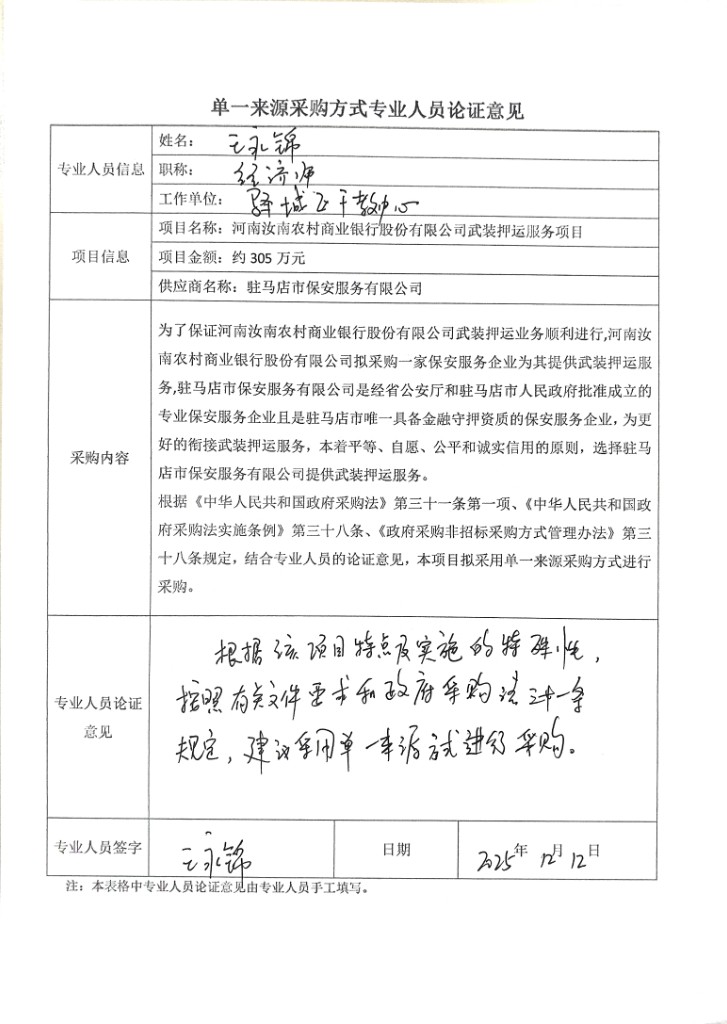 单一来源采购方式专业人员论证意见
专业人员信息
姓名：王永锦
职称：经济师
工作单位：驿城区干教中心
项目信息
项目名称：河南汝南农村商业银行股份有限公司武装押运服务项目
项目金额：约 305 万元
供应商名称：驻马店市保安服务有限公司
采购内容
为了保证河南汝南农村商业银行股份有限公司武装押运业务顺利进行,河南汝
南农村商业银行股份有限公司拟采购一家保安服务企业为其提供武装押运服
务,驻马店市保安服务有限公司是经省公安厅和驻马店市人民政府批准成立的
专业保安服务企业且是驻马店市唯一具备金融守押资质的保安服务企业，为更
好的衔接武装押运服务，本着平等、自愿、公平和诚实信用的原则，选择驻马
店市保安服务有限公司提供武装押运服务。
根据《中华人民共和国政府采购法》第三十一条第一项、《中华人民共和国政
府采购法实施条例》第三十八条、《政府采购非招标采购方式管理办法》第三
十八条规定，结合专业人员的论证意见，本项目拟采用单一来源采购方式进行
采购。
专业人员论证
意见
根据该项目特点及实施的特殊性，
按照有关文件要求和政府采购法三十一条
规定，建议采用单一来源方式进行采购。
专业人员签字
王永锦
日期
2025年 12月 12日
注：本表格中专业人员论证意见由专业人员手工填写。